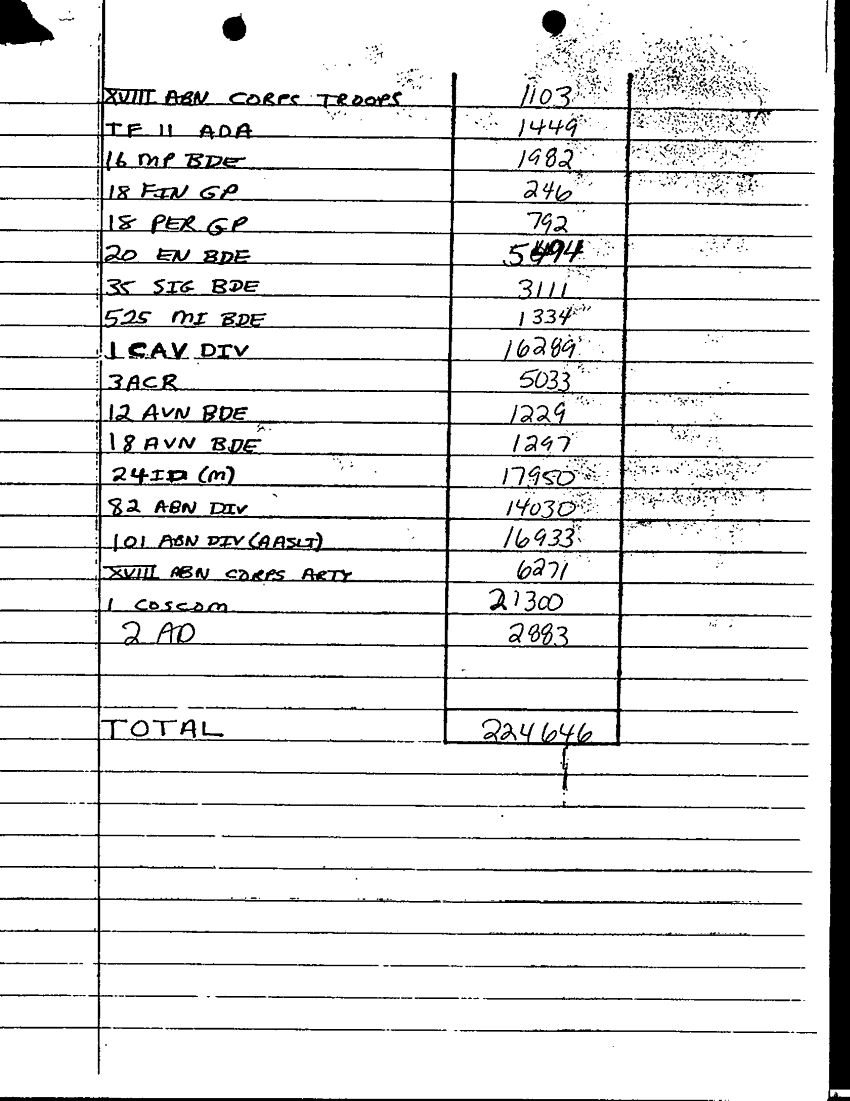 XVIII ABN CORPS TROOPS 1103
TF 11 ADA 1449
16 MP BDE 1982
18 FIN GP 246
18 PER GP 792
20 EN BDE
35 SIG BDE 3111
525 MI BDE 1334
1 CAV DIV 16289
3 ACR 5033
12 AVN BDE 1229
18 AVN BDE 1297
24 ID (M) 17950
82 ABN DIV 14030
101 ABN DIV (AASLT) 16933
XVIII ABN CORPS ARTY 6271
1 COSCOM 21300
2 AD 2883
TOTAL 224646